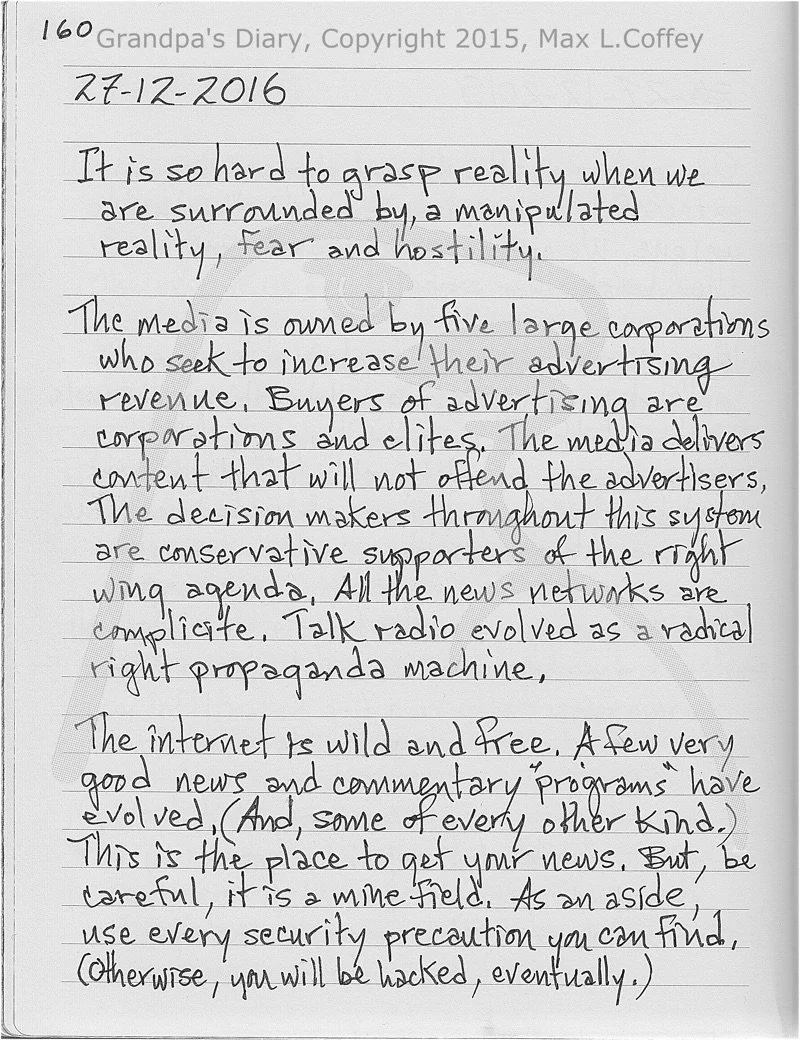 160 Grandpa's Diary, Copyright 2015, Max L.Coffey
27-12-2016
It is so hard to grasp reality when we
are surrounded by, a manipulated
reality, fear and hostility.
The media is owned by five large corporations
who seek to increase their advertising
revenue. Buyers of advertising are
corporations and elites. The media delivers
content that will not offend the advertisers,
The decision makers throughout this system
are conservative supporters of the right
wing agenda. All the news networks are
complicite. Talk radio evolved as a radical
right propaganda machine.
The internet is wild and free. A few very
good news and commentary "programs" have
evolved. (And, some of every other kind.)
This is the place to get your news. But, be
careful, it is a mine field. As an aside,
use every security precaution you can find.
(Otherwise, you will be hacked, eventually.)